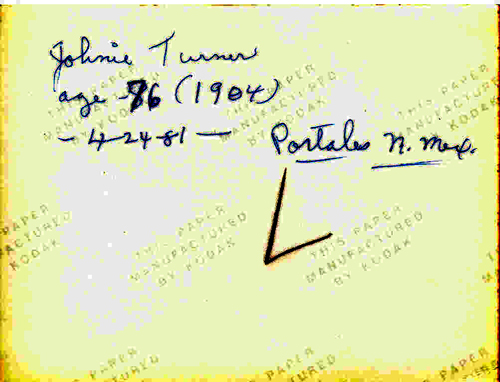 Johnie Turner
age 76 (1904)
- 4-24-81 -
Portales N. Mex.
THIS PAPER
MANUFACTURED
BY KODAK
THIS PAPER
MANUFACTURED
BY KODAK
THIS PAPER
MANUFACTURED
KODAK
PAPER
FACTURED
KODAK
THIS PAPER
MANUFACTURED
BY KODAK
THIS PAPER
MANUFACTURED
BY KODAK
PAPER
PAPER